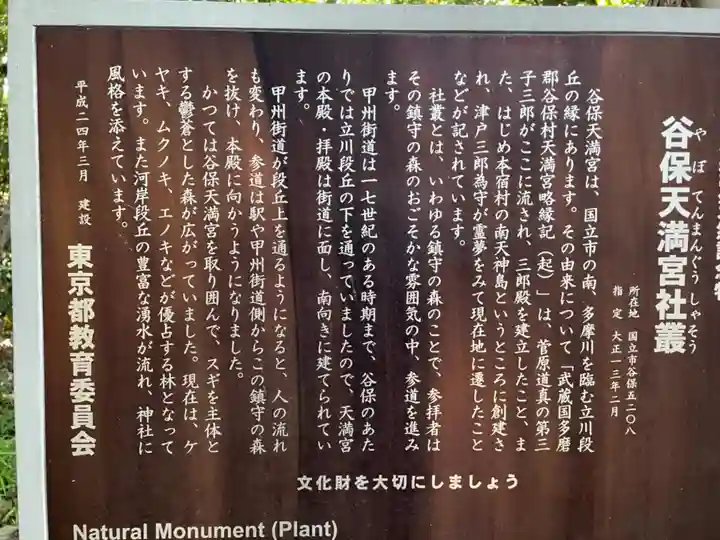 谷保天満宮社叢
やぼてんまんぐうしゃそう
所在地 国立市谷保五二〇八
指定 大正一三年二月
谷保天満宮は、国立市の南、多摩川を臨む立川段
丘の縁にあります。その由来について「武蔵国多磨
郡谷保村天満宮略縁記(起)」は、菅原道真の第三
子三郎がここに流され、三郎殿を建立したこと、ま
た、はじめ本宿村の南天神島というところに創建さ
れ、津戸三郎為守が霊夢をみて現在地に遷したこと
などが記されています。
社叢とは、いわゆる鎮守の森のことで、参拝者は
その鎮守の森のおごそかな雰囲気の中、参道を進み
ます。
甲州街道は一七世紀のある時期まで、谷保のあた
りでは立川段丘の下を通っていましたので、天満宮
の本殿・拝殿は街道に面し、南向きに建てられてい
ます。
甲州街道が段丘上を通るようになると、人の流れ
も変わり、参道は駅や甲州街道側からこの鎮守の森
を抜け、本殿に向かうようになりました。
かつては谷保天満宮を取り囲んで、スギを主体と
する鬱蒼とした森が広がっていました。現在は、ケ
ヤキ、ムクノキ、エノキなどが優占する林となって
います。また河岸段丘の豊富な湧水が流れ、神社に
風格を添えています。
平成二四年三月 建設
東京都教育委員会
文化財を大切にしましょう
Natural Monument (Plant)